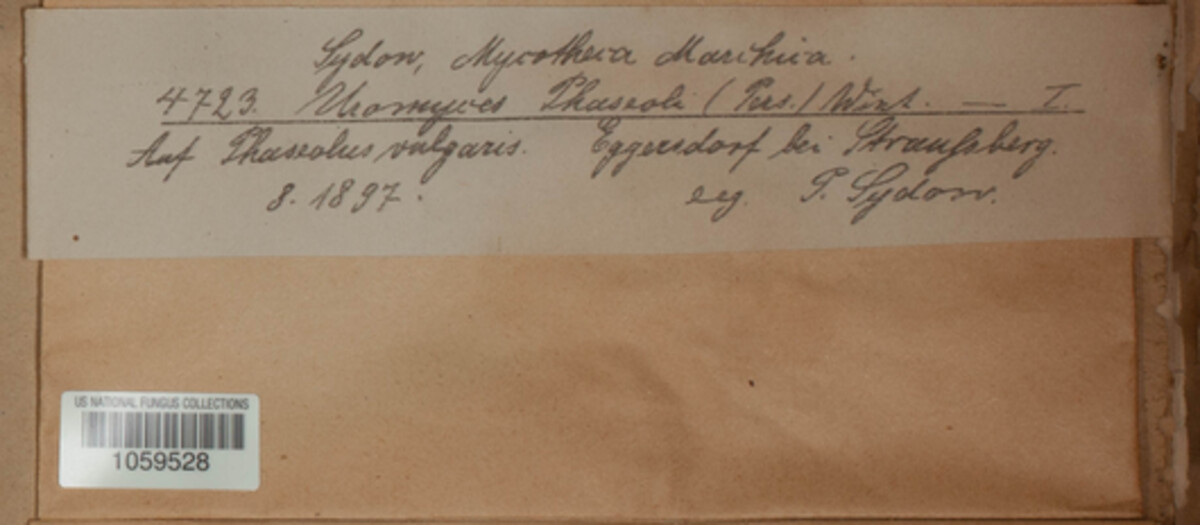 Sydow, Mycotheca Marchica.
4723. Uromyces Phaseoli (Pers.) Wint. — I.
Auf Phaseolus vulgaris. Eggersdorf bei Straußberg.
8. 1897. leg. P. Sydow.
US NATIONAL FUNGUS COLLECTIONS
1059528